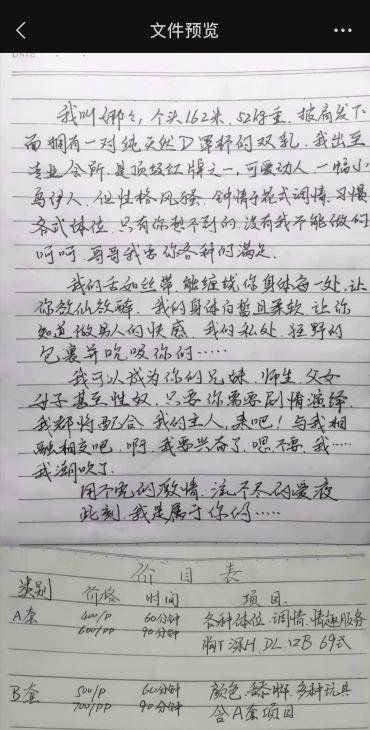 文件预览
DATE
我叫娜娜，个头162米，52仟重，披肩发下
面拥有一对纯天然D罩杯的双乳，我出至
专业会所，是顶级红牌之一，可爱动人，一幅小
鸟伊人，但性格风骚，钟情于花式调情，习惯
各式体位，只有你想不到的，没有我不能做的
呵呵，哥哥我要你各种的满足
我的舌如丝带，能缠绕你身体每一处，让
你欲仙欲醉，我的身体白皙且柔软，让你
知道做男人的快感，我的私处，狂野的
包裹并吮吸你的……
我可以成为你的兄妹，师生，父女
母子甚至性奴，只要你需要剧情演绎
我都将配合，我的主人，来吧！与我相
融相交吧，啊，我要兴奋了，嗯不要，我……
我潮吹了
用不完的激情，流不尽的爱液
此刻，我是属于你的……
价目表
类别 价格 时间 项目
A套 400/p 60分钟 各种体位、调情、情趣服务
600/pp 90分钟 胸T 深H、DL、口B 69式
B套 500/p 60分钟 颜色、舔脚、多种玩具
700/pp 90分钟 含A套项目